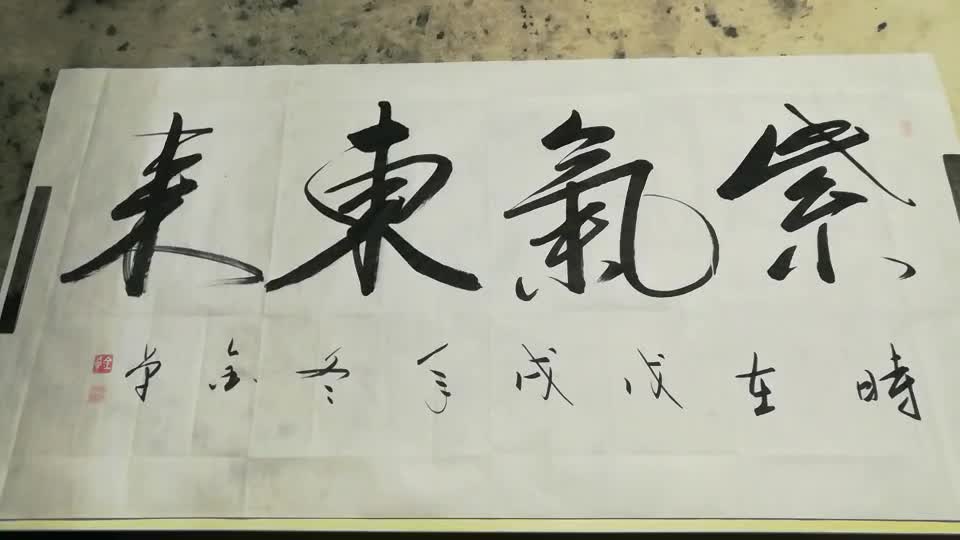 紫氣東来
時在戊戌年冬金章